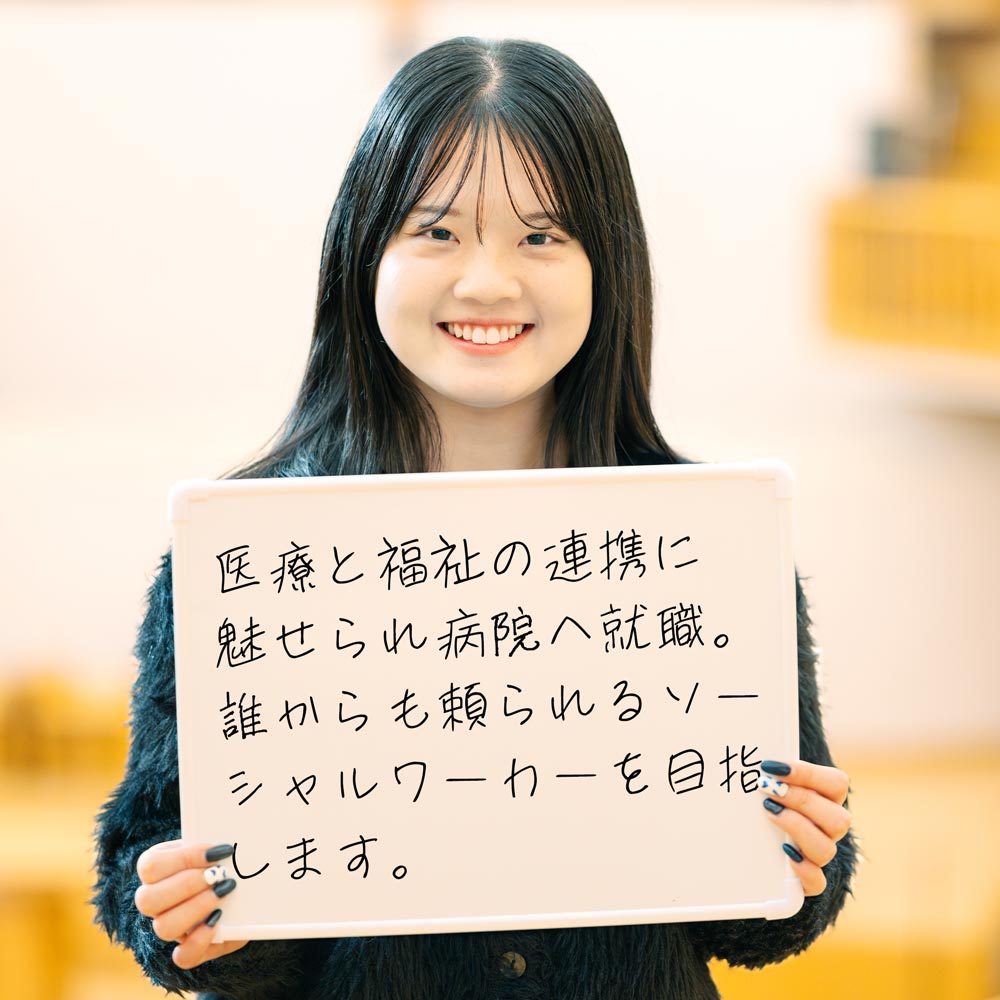 医療と福祉の連携に
魅せられ病院へ就職。
誰からも頼られるソー
シャルワーカーを目指
します。